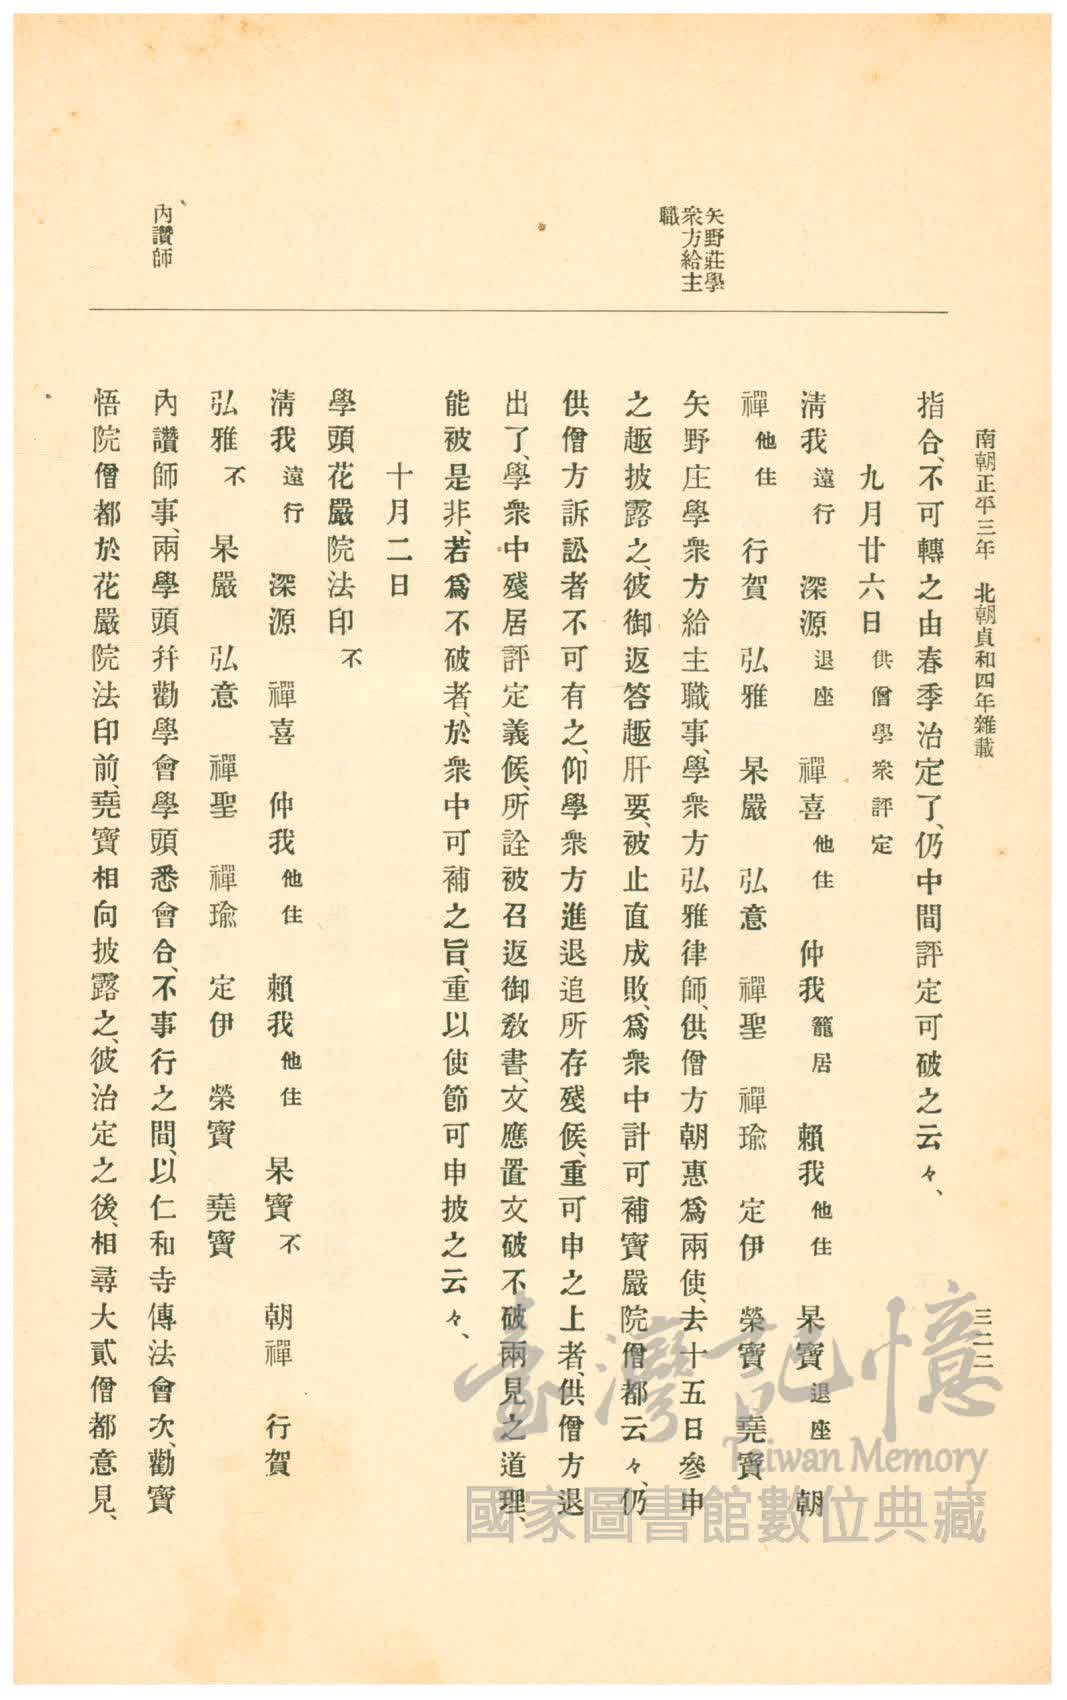 南朝正平三年　北朝貞和四年雜載
三二二
矢野莊學
衆方給主
職
內讚師
指合、不可轉之由春季治定了、仍中間評定可破之云々、
九月廿六日供僧學衆評定
淸我遠行　深源退座　禪喜他住　仲我籠居　賴我他住　杲寶退座　朝
禪他住　行賀　弘雅　杲嚴　弘意　禪聖　禪瑜　定伊　榮寶　堯寶
矢野庄學衆方給主職事、學衆方弘雅律師、供僧方朝惠爲兩使、去十五日參申
之趣披露之、彼御返答趣肝要、被止直成敗、爲衆中計可補寶嚴院僧都云々、仍
供僧方訴訟者不可有之、仰學衆方進退追所存殘候、重可申之上者、供僧方退
出了、學衆中殘居評定義候、所詮被召返御敎書、文應置文破不破兩見之道理、
能被是非、若爲不破者、於衆中可補之旨、重以使節可申披之云々、
十月二日
學頭花嚴院法印不
淸我遠行　深源　禪喜　仲我他住　賴我他住　杲寶不　朝禪　行賀
弘雅不　杲嚴　弘意　禪聖　禪瑜　定伊　榮寶　堯寶
內讚師事、兩學頭幷勸學會學頭悉會合、不事行之間、以仁和寺傳法會次、勸寶
悟院僧都於花嚴院法印前、堯寶相向披露之、彼治定之後、相尋大貳僧都意見、
臺灣記憶
Taiwan Memory
國家圖書館數位典藏